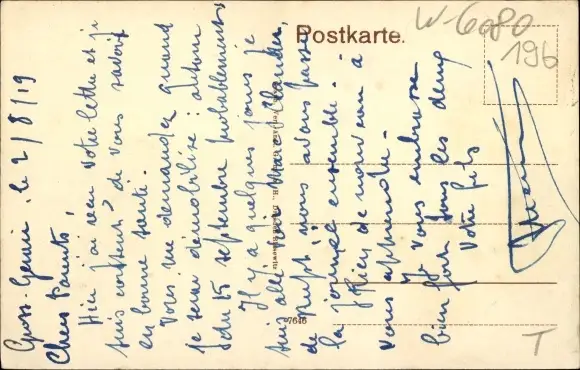 Postkarte.
W-6080
196
Gross-Gerau, le 2/8/19
Chers Parents,
Hier j'ai reçu votre lettre et je
suis content de vous savoir
en bonne santé.
Vous me demandez quand
je serai démobilisé : autour
du 15 septembre probablement
Il y a quelques jours je
suis allé
de nous avons passé
la journée ensemble.
Rien de nouveau à
vous apprendre.
Je vous embrasse
bien fort tous les deux
Votre fils
7646
T